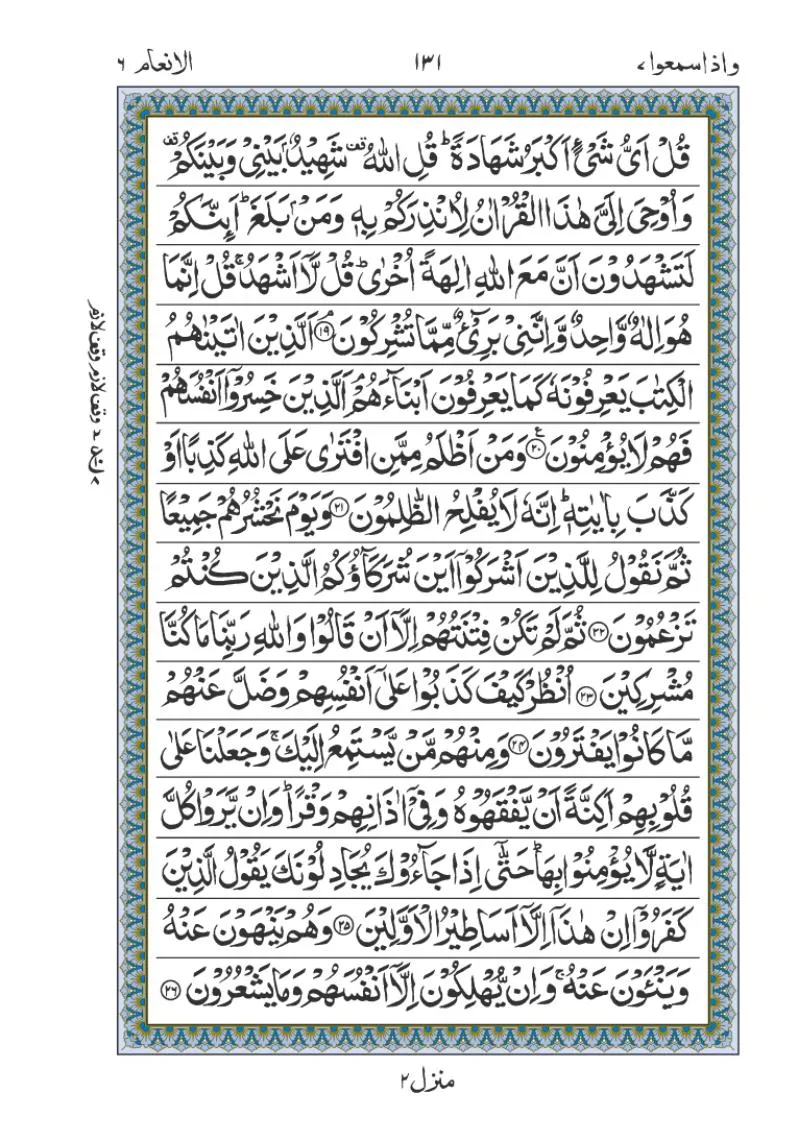 واذا سمعوا ۷ ۱۳۱ الانعام ۶
قُلْ اَیُّ شَیْءٍ اَكْبَرُ شَهَادَةًؕ قُلِ اللّٰهُ ۙ۫ شَهِیْدٌۢ بَیْنِیْ وَ بَیْنَكُمْ ۫
وَ اُوْحِیَ اِلَیَّ هٰذَا الْقُرْاٰنُ لِاُنْذِرَكُمْ بِهٖ وَ مَنْۢ بَلَغَؕ اَىِٕنَّكُمْ
لَتَشْهَدُوْنَ اَنَّ مَعَ اللّٰهِ اٰلِهَةً اُخْرٰیؕ قُلْ لَّاۤ اَشْهَدُۚ قُلْ اِنَّمَا
هُوَ اِلٰهٌ وَّاحِدٌ وَّ اِنَّنِیْ بَرِیْٓءٌ مِّمَّا تُشْرِكُوْنَۘ ۱۹ اَلَّذِیْنَ اٰتَیْنٰهُمُ
الْكِتٰبَ یَعْرِفُوْنَهٗ كَمَا یَعْرِفُوْنَ اَبْنَآءَهُمْۘ اَلَّذِیْنَ خَسِرُوْۤا اَنْفُسَهُمْ
فَهُمْ لَا یُؤْمِنُوْنَ ۲۰ۧ وَ مَنْ اَظْلَمُ مِمَّنِ افْتَرٰی عَلَی اللّٰهِ كَذِبًا اَوْ
كَذَّبَ بِاٰیٰتِهٖؕ اِنَّهٗ لَا یُفْلِحُ الظّٰلِمُوْنَ ۲۱ وَ یَوْمَ نَحْشُرُهُمْ جَمِیْعًا
ثُمَّ نَقُوْلُ لِلَّذِیْنَ اَشْرَكُوْۤا اَیْنَ شُرَكَآؤُكُمُ الَّذِیْنَ كُنْتُمْ
تَزْعُمُوْنَ ۲۲ ثُمَّ لَمْ تَكُنْ فِتْنَتُهُمْ اِلَّاۤ اَنْ قَالُوْا وَ اللّٰهِ رَبِّنَا مَا كُنَّا
مُشْرِكِیْنَ ۲۳ اُنْظُرْ كَیْفَ كَذَبُوْا عَلٰۤی اَنْفُسِهِمْ وَ ضَلَّ عَنْهُمْ
مَّا كَانُوْا یَفْتَرُوْنَ ۲۴ وَ مِنْهُمْ مَّنْ یَّسْتَمِعُ اِلَیْكَۚ وَ جَعَلْنَا عَلٰی
قُلُوْبِهِمْ اَكِنَّةً اَنْ یَّفْقَهُوْهُ وَ فِیْۤ اٰذَانِهِمْ وَقْرًاؕ وَ اِنْ یَّرَوْا كُلَّ
اٰیَةٍ لَّا یُؤْمِنُوْا بِهَاؕ حَتّٰۤی اِذَا جَآءُوْكَ یُجَادِلُوْنَكَ یَقُوْلُ الَّذِیْنَ
كَفَرُوْۤا اِنْ هٰذَاۤ اِلَّاۤ اَسَاطِیْرُ الْاَوَّلِیْنَ ۲۵ وَ هُمْ یَنْهَوْنَ عَنْهُ
وَ یَنْـَٔوْنَ عَنْهُۚ وَ اِنْ یُّهْلِكُوْنَ اِلَّاۤ اَنْفُسَهُمْ وَ مَا یَشْعُرُوْنَ ۲۶
منزل ۲